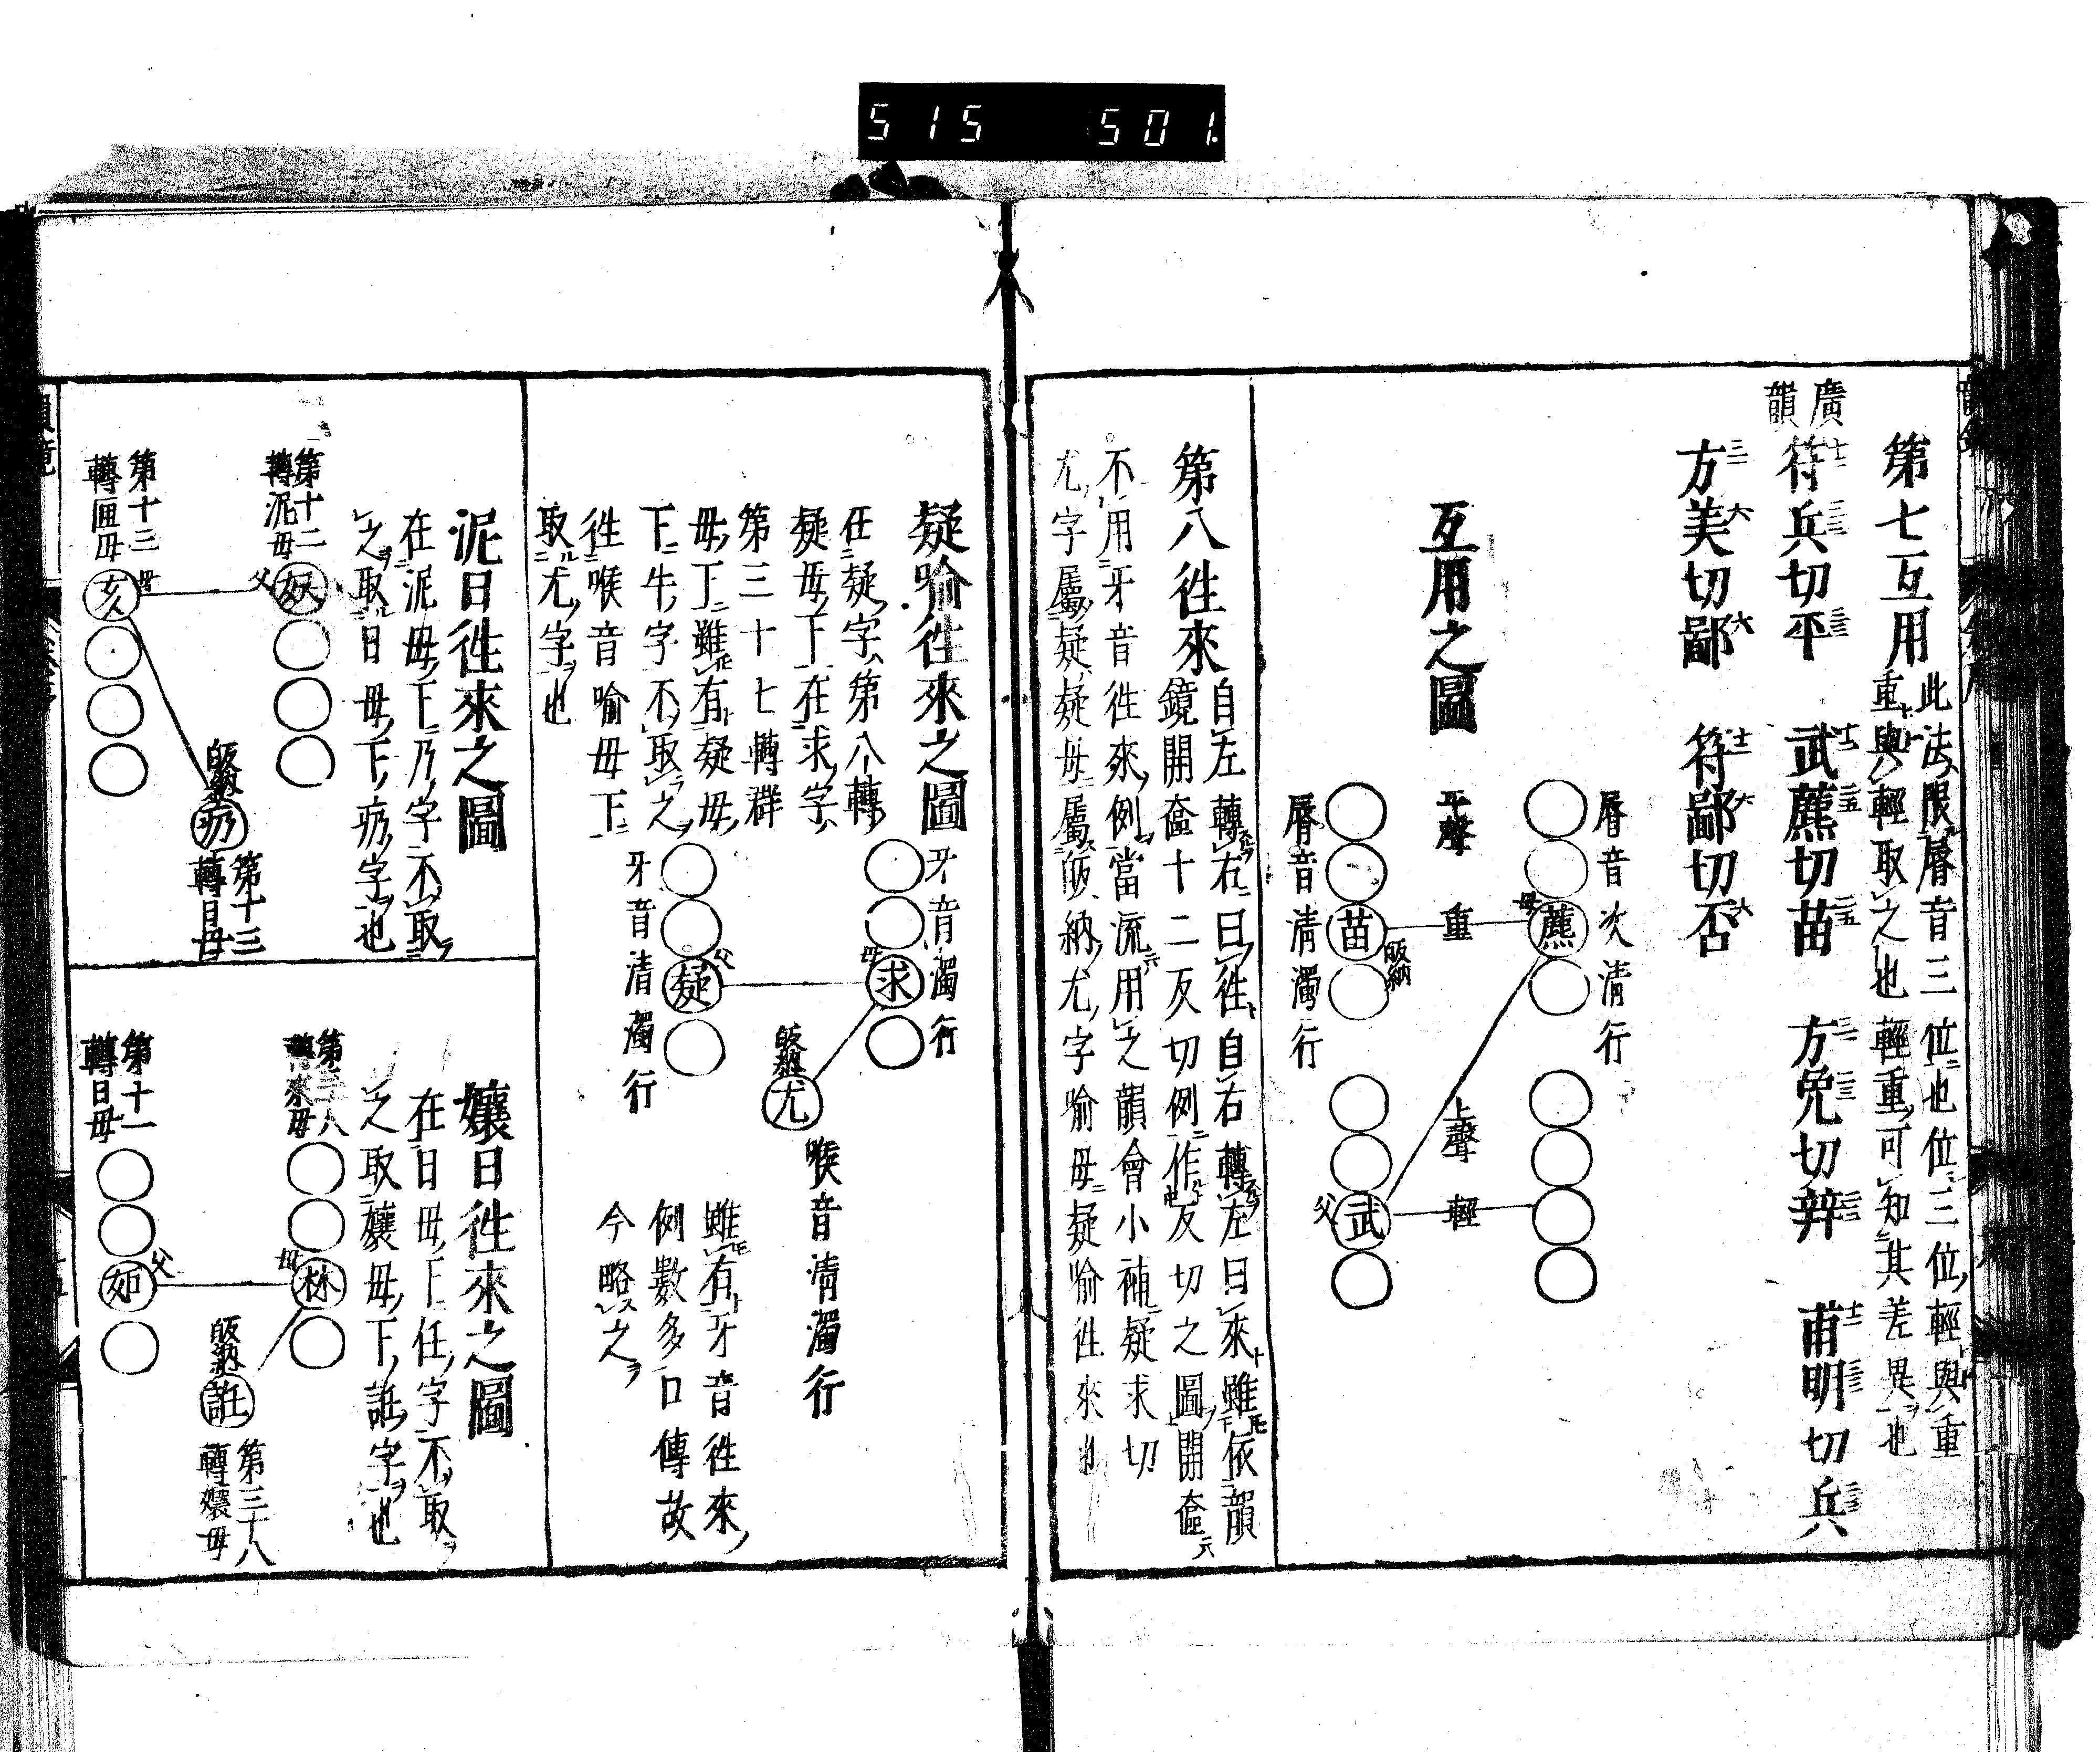 515 501
第七互用
此法限脣音三位也位三位輕與重
重與輕取之也輕重可知其差異也
廣韻
符兵切平 武蔗切苗 方免切辡 甫明切兵
方美切鄙 符鄙切否
互用之圖
脣音次清行
蔗
母
平聲 重
上聲 輕
苗
皈納
武
父
脣音清濁行
第八徃來
自左轉右曰徃自右轉左曰來雖依韻
鏡開奩十二反切例作反切之圖開奩
不用牙音徃來例當流用之韻會小補疑求切
尤字屬疑疑母屬皈納尤字喻母疑喻徃來也
疑喻徃來之圖
在疑字第八轉
疑母下在求字
第三十七轉群
母丁雖有疑母
下牛字不取之
徃喉音喻母下
取尤字也
牙音濁行
求
母
疑
父
牙音清濁行
皈納
尤
喉音清濁行
雖有牙音徃來
例數多口傳故
今略之
泥日徃來之圖
在泥母下乃字不取
之取日母下疓字也
第十二
轉泥母
妖
父
第十三
轉匣母
亥
母
皈納
疓
第十三
轉日母
孃日徃來之圖
在日母下任字不取
之取孃母下誑字也
第三十八
轉來母
林
母
第十一
轉日母
如
父
皈納
誑
第三十八
轉孃母